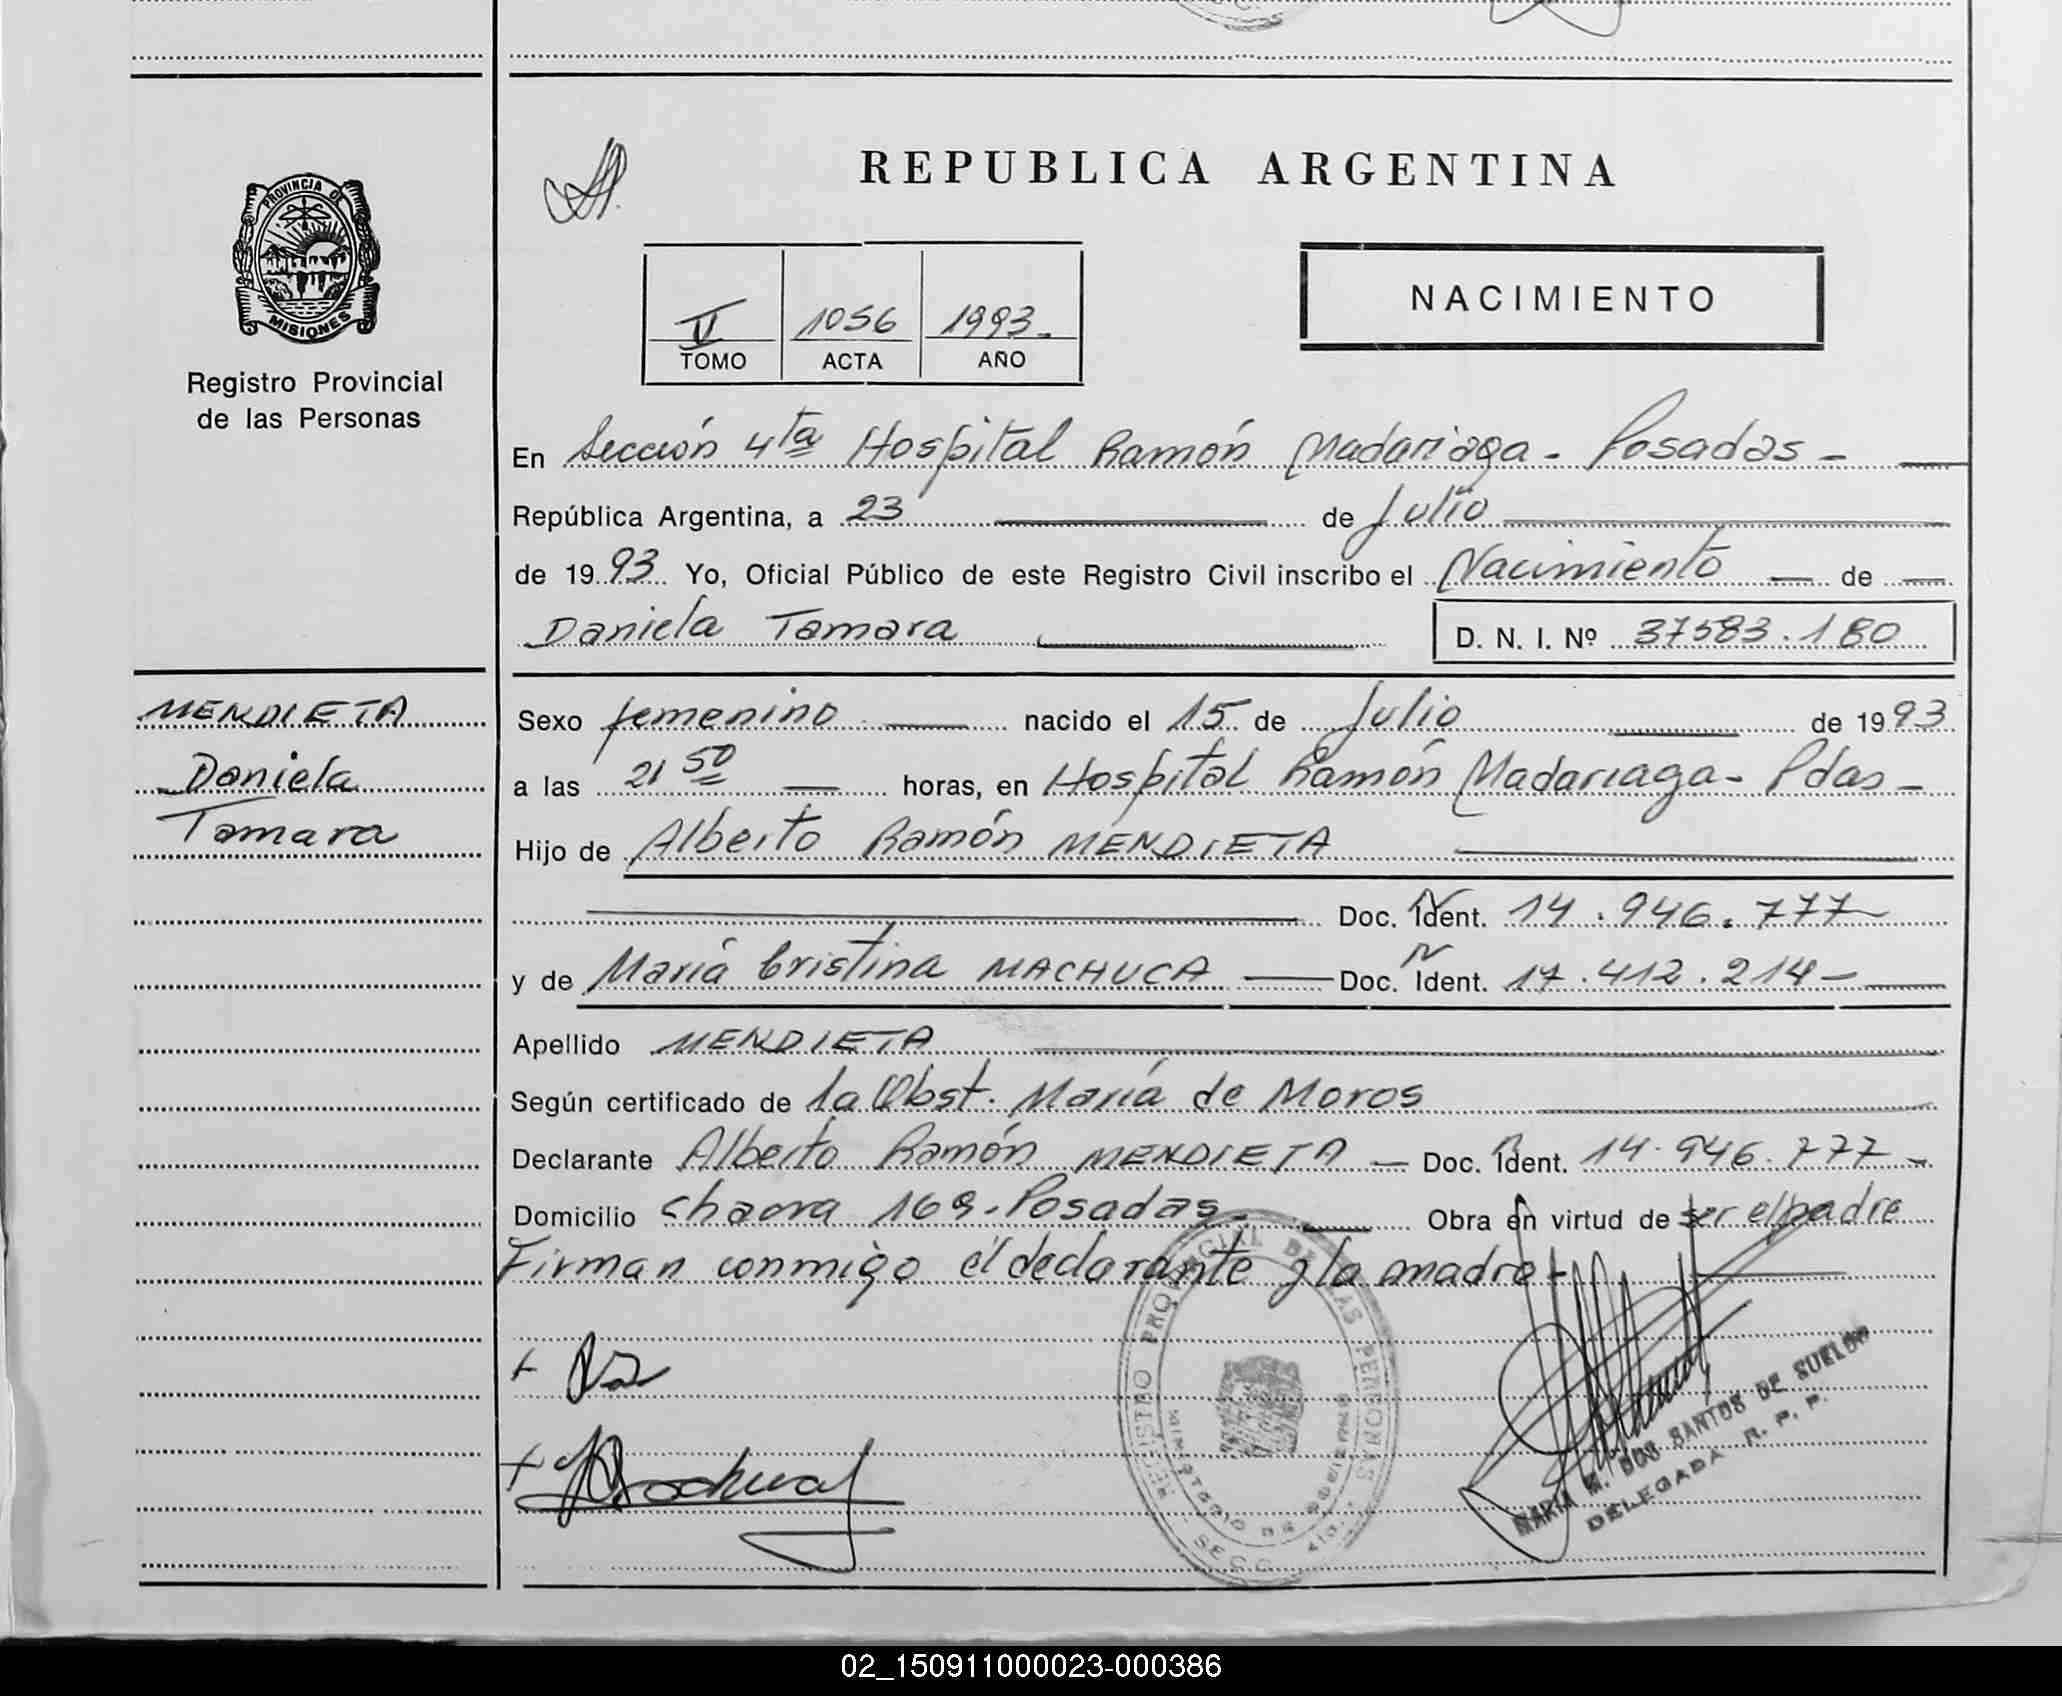 REPUBLICA ARGENTINA
PROVINCIA DE
MISIONES
Registro Provincial
de las Personas
V 1056 1993.
TOMO ACTA AÑO
NACIMIENTO
En Sección 4ta Hospital Ramón Madariaga - Posadas -
República Argentina, a 23 de Julio
de 1993 Yo, Oficial Público de este Registro Civil inscribo el Nacimiento de
Daniela Tamara D. N. I. Nº 37583.180
MENDIETA
Daniela
Tamara
Sexo femenino nacido el 15 de Julio de 1993
a las 21 50 horas, en Hospital Ramón Madariaga - Pdas -
Hijo de Alberto Ramón MENDIETA
Doc. Ident. 14.946.777
y de María Cristina MACHUCA Doc. Ident. 17.412.214-
Apellido MENDIETA
Según certificado de la Obst. María de Moros
Declarante Alberto Ramón MENDIETA - Doc. Ident. 14.946.777 -
Domicilio chacra 169. Posadas - Obra en virtud de ser el padre
Firman conmigo el declarante y la madre -
REGISTRO PROVINCIAL DE LAS PERSONAS
MINISTERIO DE GOBIERNO
SECC. 4ta.
MARIA M. DOS SANTOS DE SUELDO
DELEGADA R. P. P.
02_150911000023-000386